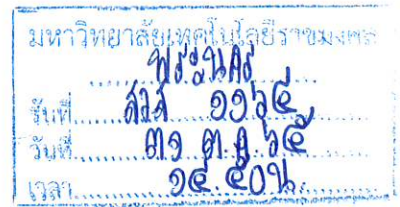 มหาวิทยาลัยเทคโนโลยีราชมงคล
พระนคร
รับที่ สวส ๑๑๖๕
วันที่ ๓๑ ต.ค. ๖๕
เวลา ๑๕.๕๐น.